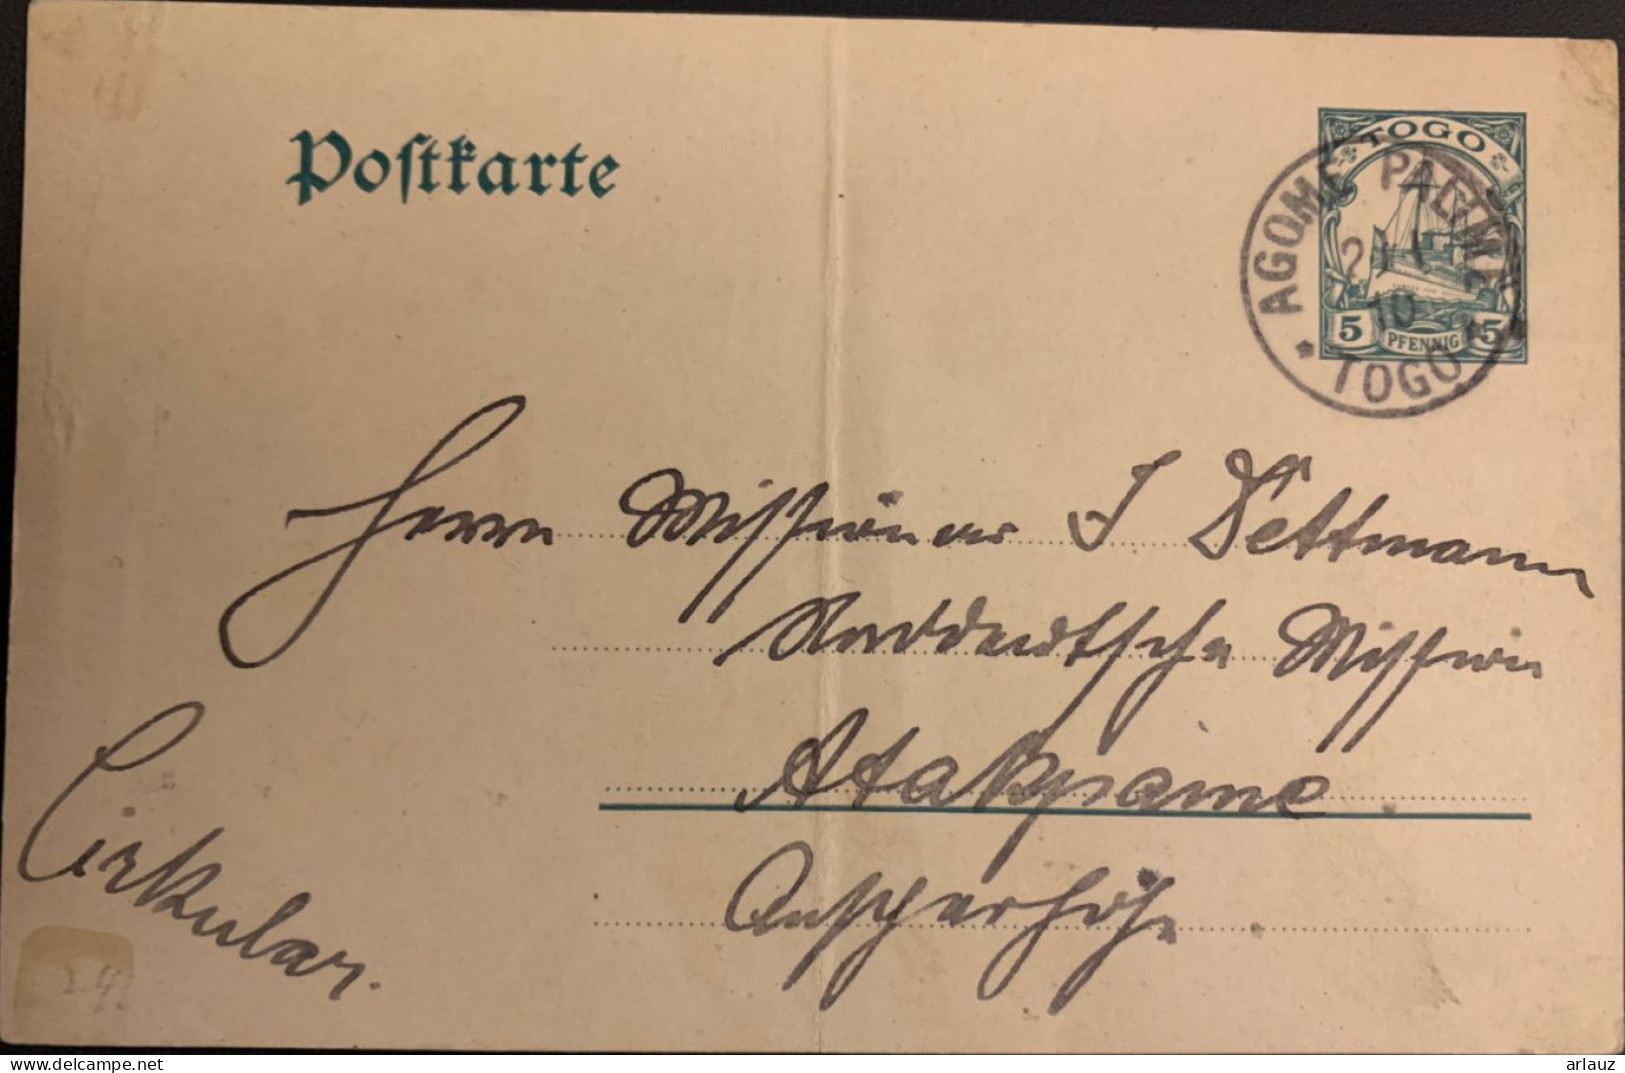 Postkarte
TOGO
5 PFENNIG 5
AGOME PALIME
10
* TOGO *
Herrn Missionar J Dettmann
Norddeutsche Mission
Atakpame.
Anscherhöhe
Cirkular.
arlauz
delcampe.net